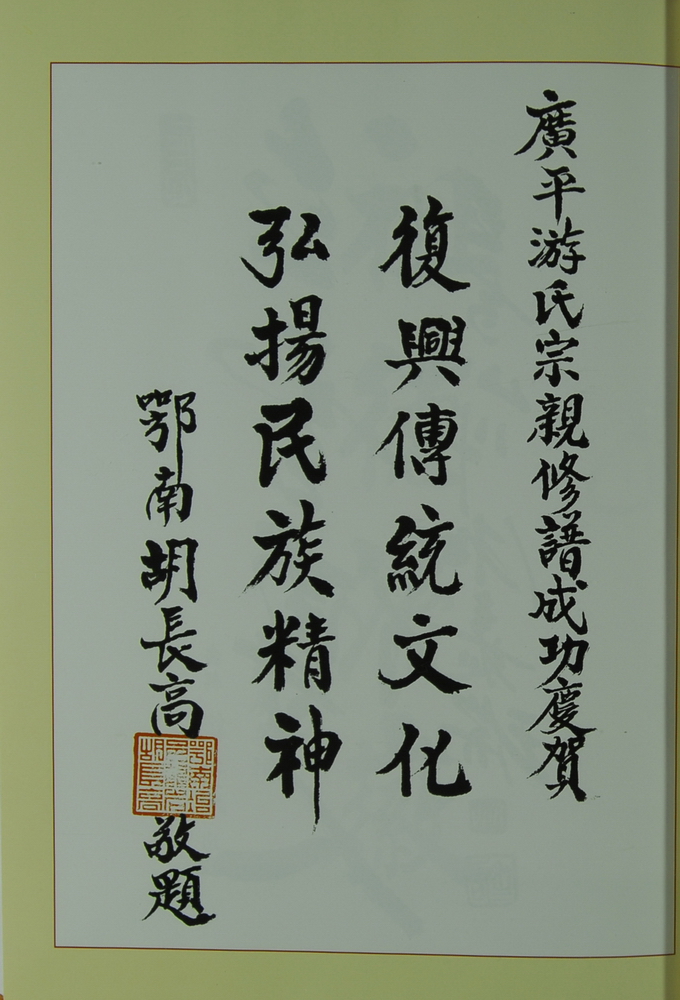 廣平游氏宗親修譜成功慶賀
復興傳統文化
弘揚民族精神
鄂南胡長高
敬題